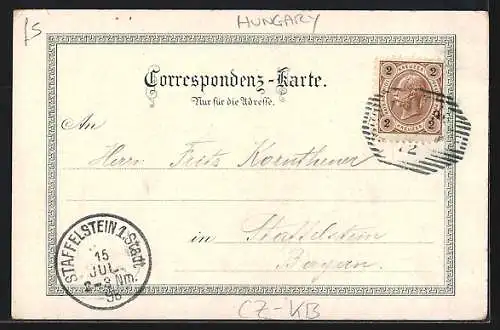 £5
HUNGARY
Correspondenz-Karte.
Nur für die Adresse.
2 KREUZER 2
2 KREUZER 2
12
An
Herrn Fritz Korntheuer
in Staffelstein
Bayern.
STAFFELSTEIN 1. Stadt.
15
JUL.
2-3 Nm.
98
CZ-KB